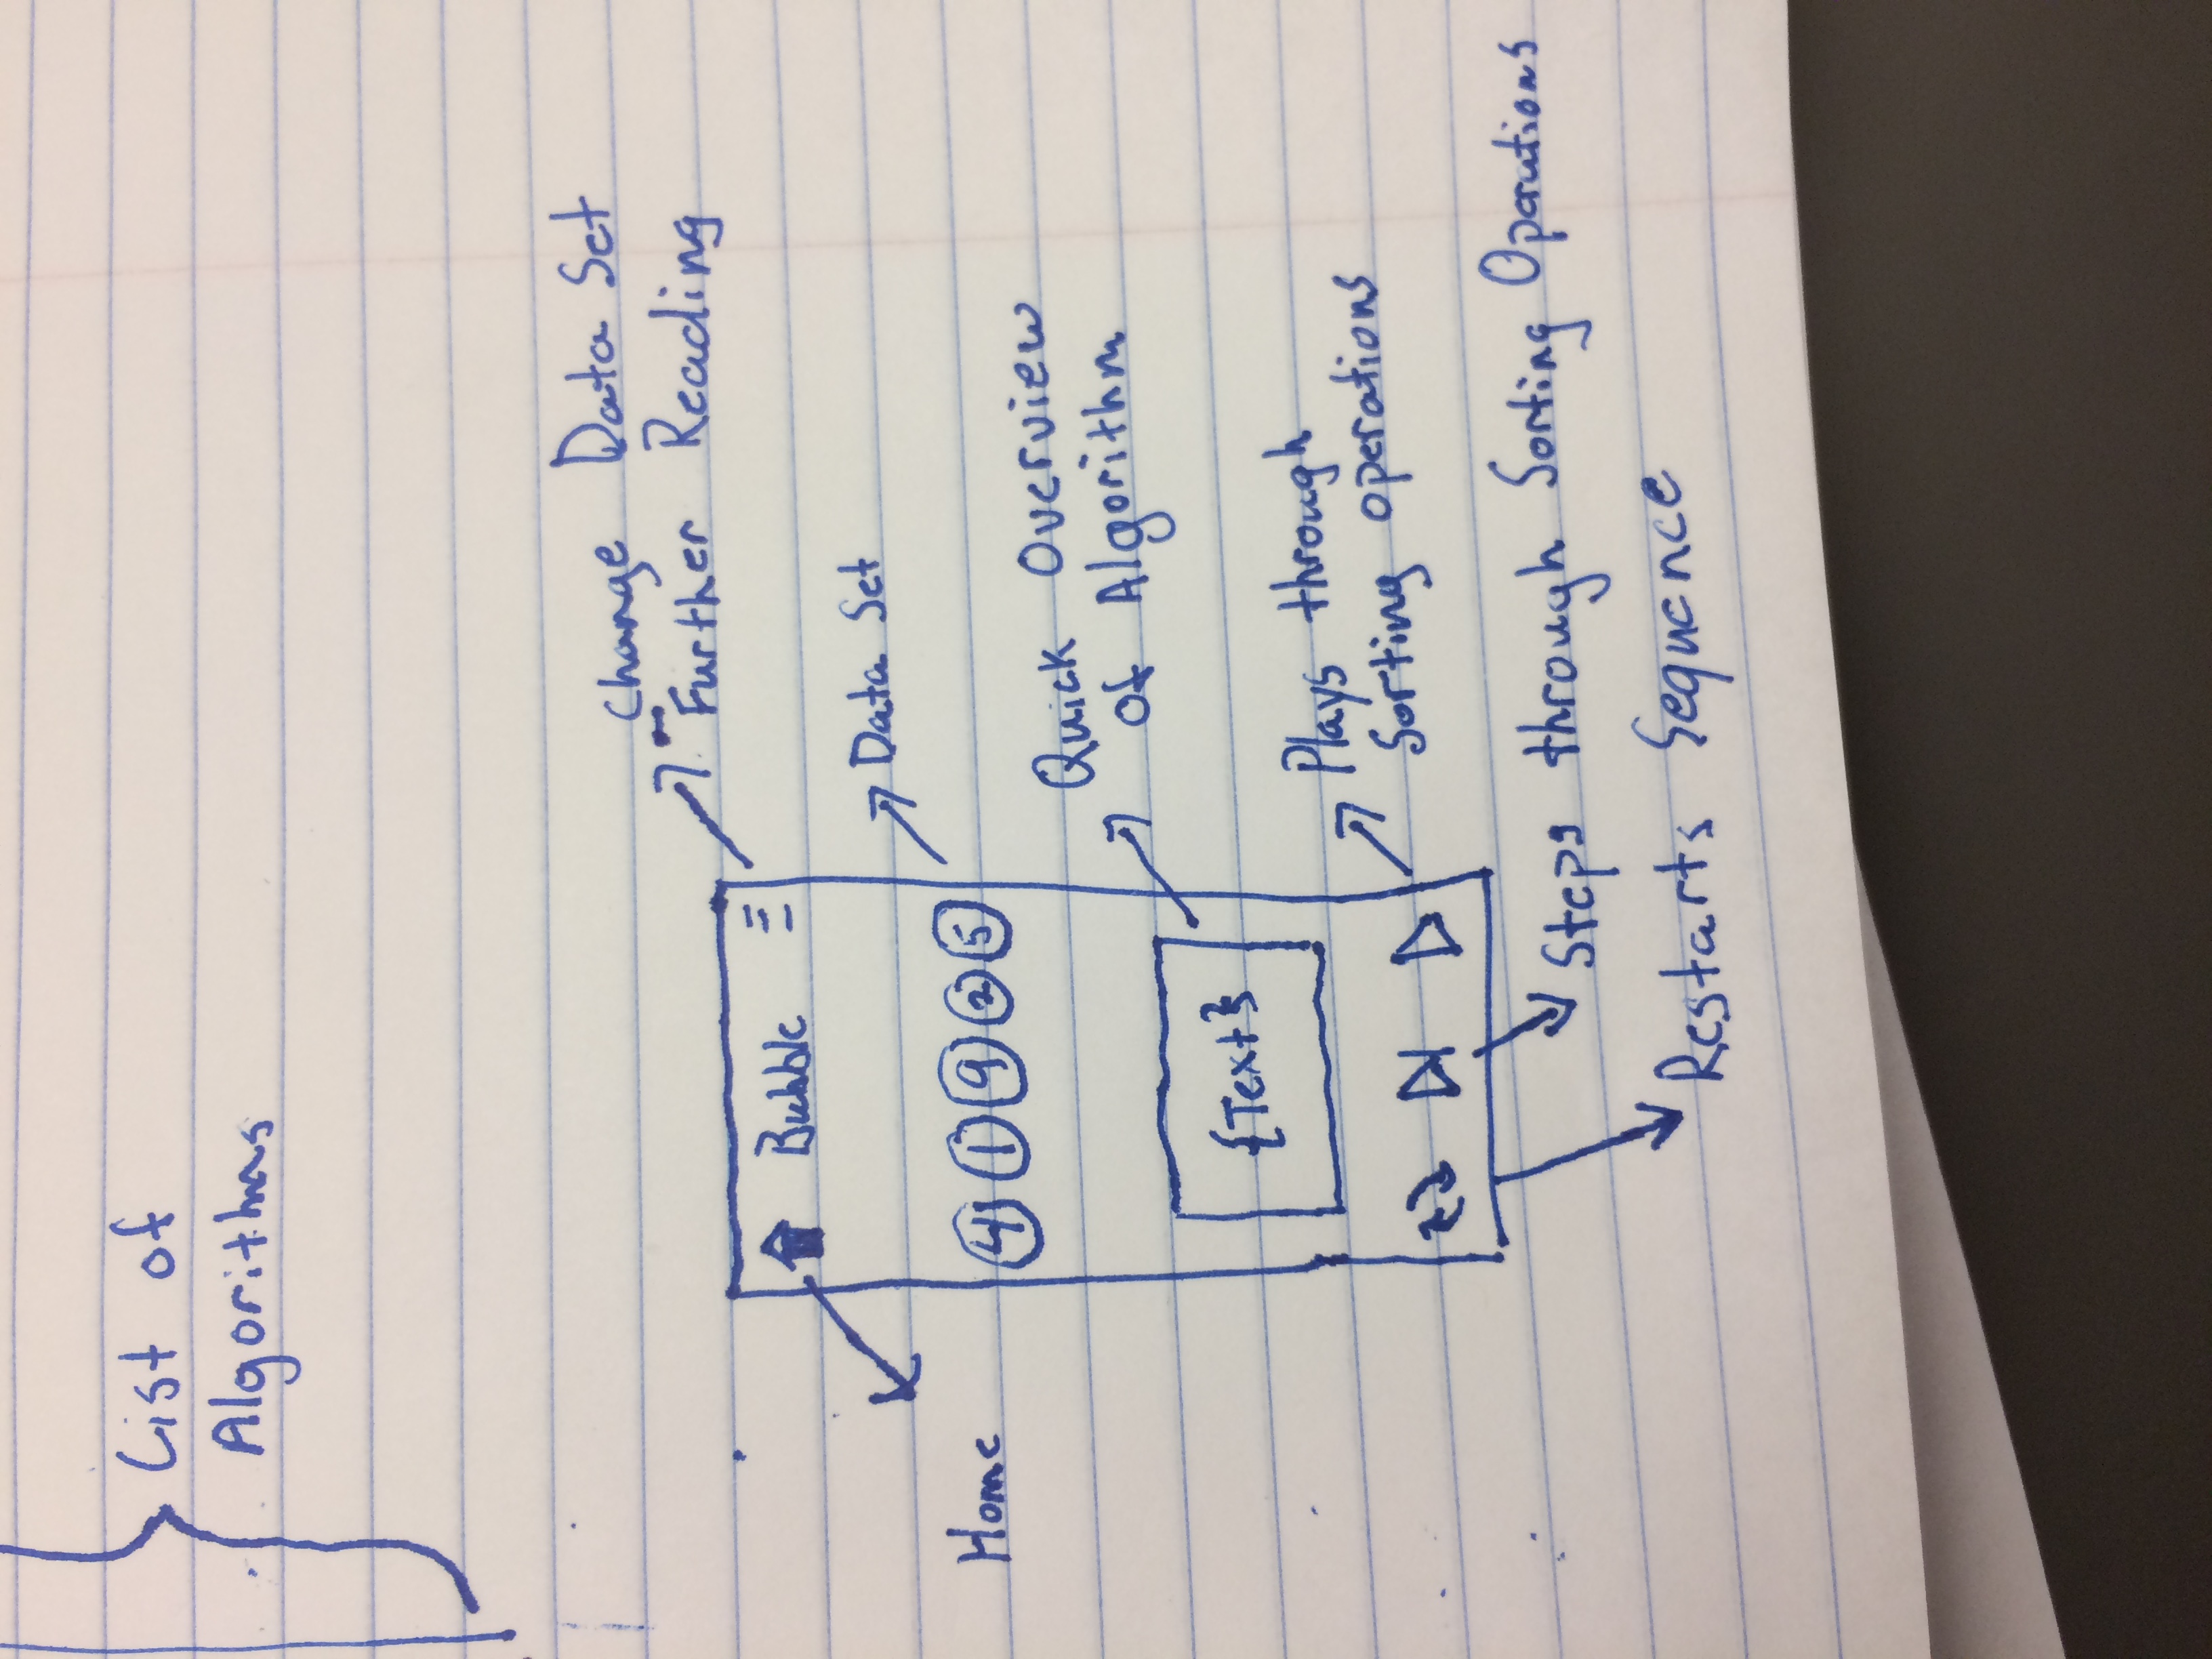 List of
Algorithms
Change Data Set
Further Reading
Bubble
Data Set
Home
4 1 9 2 5
Quick Overview
Of Algorithm
{Text}
Plays through
Sorting operations
Steps through Sorting Operations
Restarts Sequence